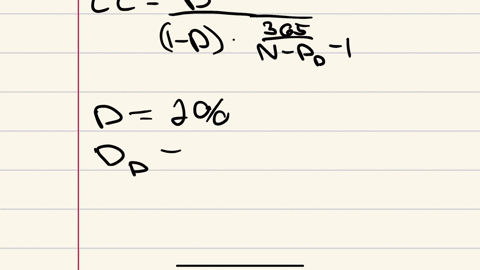 CC = D
(1-D) · 365
N-D_D-1
D = 20%
D_D =